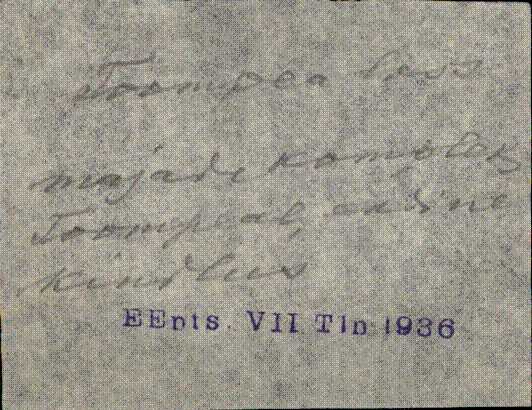 Toompea loss
majade kompleks
Toompeal, endine
kindlus
EEnts. VII Tln 1936